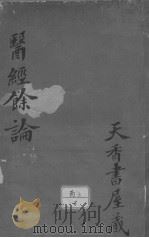 醫經餘論
天香書屋藏